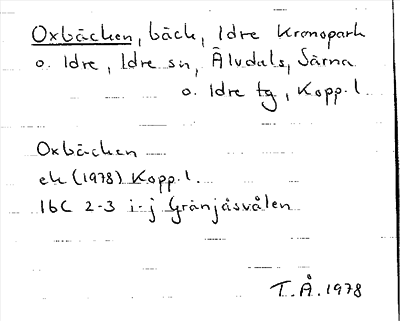 Oxbäcken, bäck, Idre Kronopark
o. Idre, Idre sn, Älvdals, Särna
o. Idre tg, Kopp. l.
Oxbäcken
ek (1978) Kopp. l.
16C 2-3 i-j Gränjåsvålen
T.Å. 1978